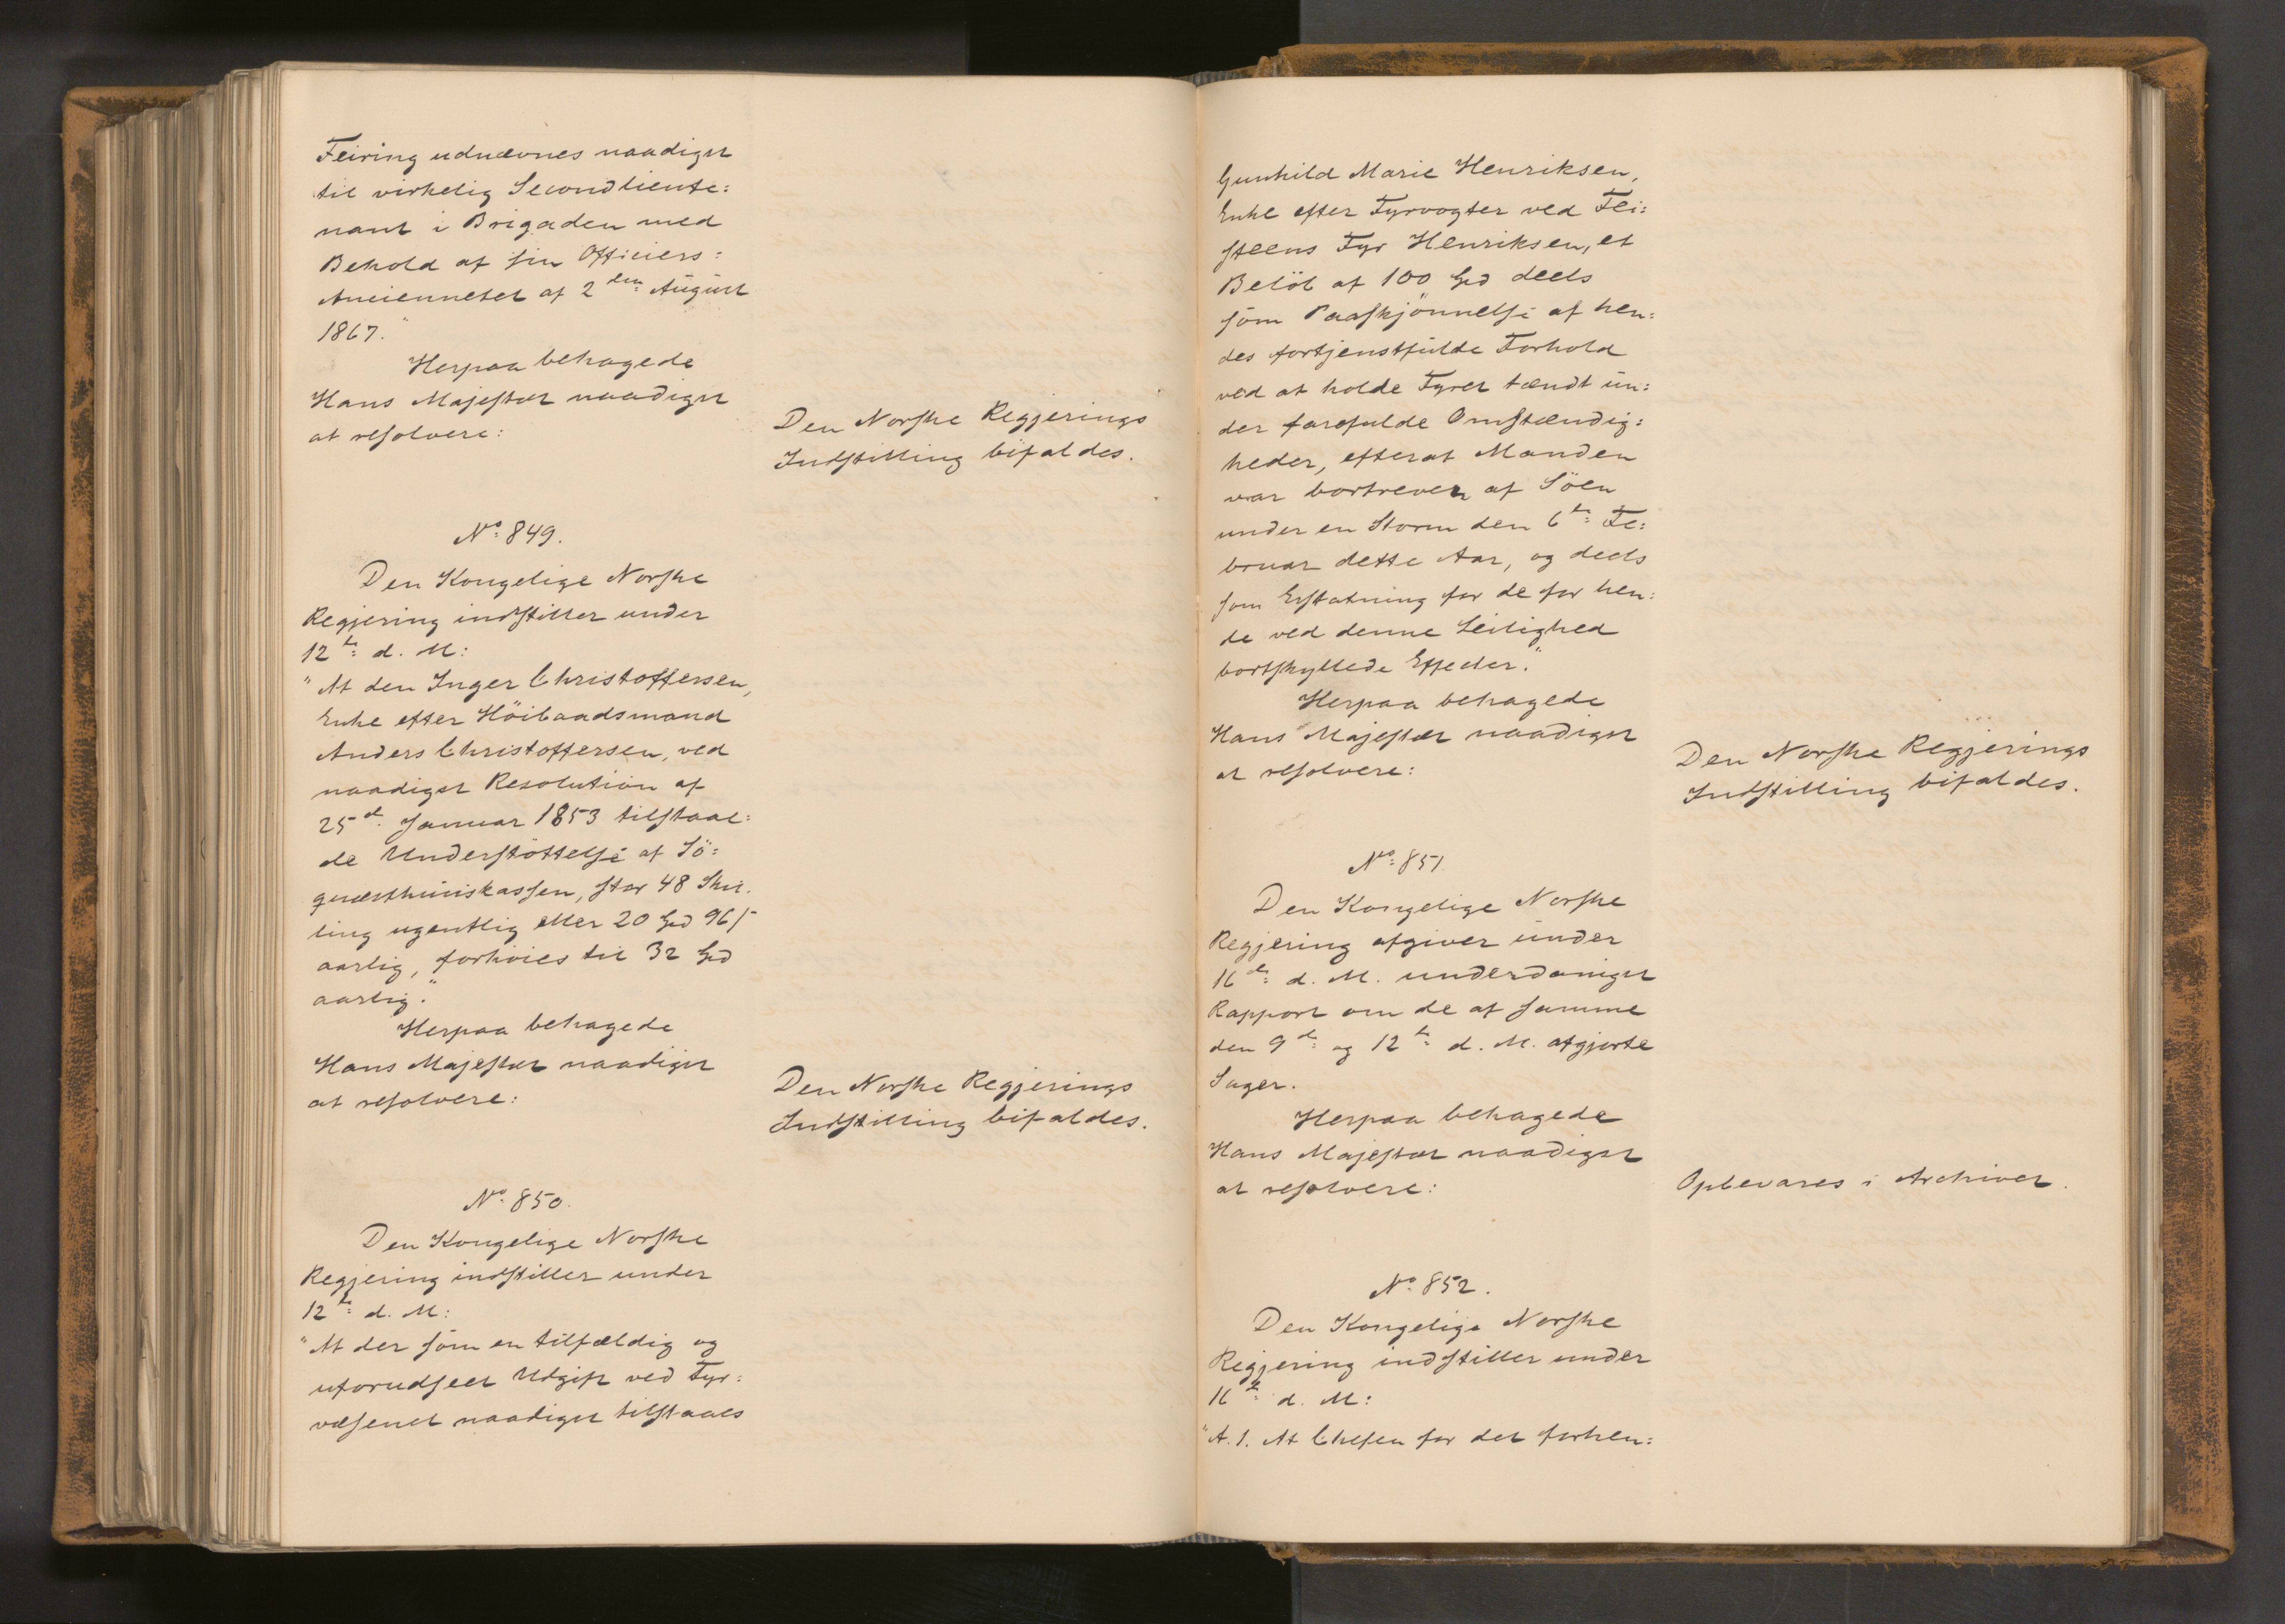 Feiring udnævnes naadigst
til virkelig Secondlieute:
nant i Brigaden med
Behold af sin Officiers:
Anciennetet af 2den August
1867."
Herpaa behagede
Hans Majestæt naadigst
at resolvere:
Den Norske Regjerings
Indstilling bifaldes.
No: 849.
Den Kongelige Norske
Regjering indstiller under
12te d. M:
"At den Inger Christoffersen,
Enke efter Höibaadsmand
Anders Christoffersen, ved
naadigst Resolution af
25de Januar 1853 tilstaae:
de Understöttelse af Sö:
quæsthuuskassen, stor 48 Skil:
ling ugentlig eller 20 Spd 96 s
aarlig, forhöies til 32 Spd
aarlig."
Herpaa behagede
Hans Majestæt naadigst
at resolvere:
Den Norske Regjerings
Indstilling bifaldes.
No: 850.
Den Kongelige Norske
Regjering indstiller under
12te d. M:
"At der som en tilfældig og
uforudseet Udgift ved Fyr:
væsenet naadigst tilstaaes
Gunhild Marie Henriksen,
Enke efter Fyrvogter ved Fei:
steens Fyr Henriksen, et
Belöb af 100 Spd deels
som Paaskjönnelse af hen:
des fortjenstfulde Forhold
ved at holde Fyret tændt un:
der farefulde Omstændig:
heder, efterat Manden
var bortreven af Söen
under en Storm den 6te Fe:
bruar dette Aar, og deels
som Erstatning for de for hen:
de ved denne Leilighed
bortskyllede Effecter."
Herpaa behagede
Hans Majestæt naadigst
at resolvere:
Den Norske Regjerings
Indstilling bifaldes.
No: 851.
Den Kongelige Norske
Regjering afgiver under
16de d. M. underdanigst
Rapport om de af samme
den 9de og 12te d. M. afgjorte
Sager.
Herpaa behagede
Hans Majestæt naadigst
at resolvere:
Opbevares i Archivet.
No: 852.
Den Kongelige Norske
Regjering indstiller under
16de d. M:
"A. 1. At Chefen for det forhen: